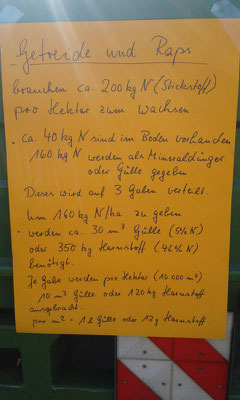 Getreide und Raps
brauchen ca. 200 kg N (Stickstoff)
pro Hektar zum Wachsen.
• ca. 40 kg N sind im Boden vorhanden
160 kg N werden als Mineraldünger
oder Gülle gegeben.
Dieser wird auf 3 Gaben verteilt.
Um 160 kg N/ha zu geben
- werden ca. 30 m³ Gülle (5% N)
oder 350 kg Harnstoff (46% N)
benötigt.
Je Gabe werden pro Hektar (10.000 m²)
10 m³ Gülle oder 120 kg Harnstoff
ausgebracht.
pro m² = 1 l Gülle oder 12 g Harnstoff.